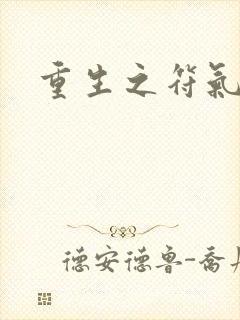 重生之符氣
德安德鲁-喬